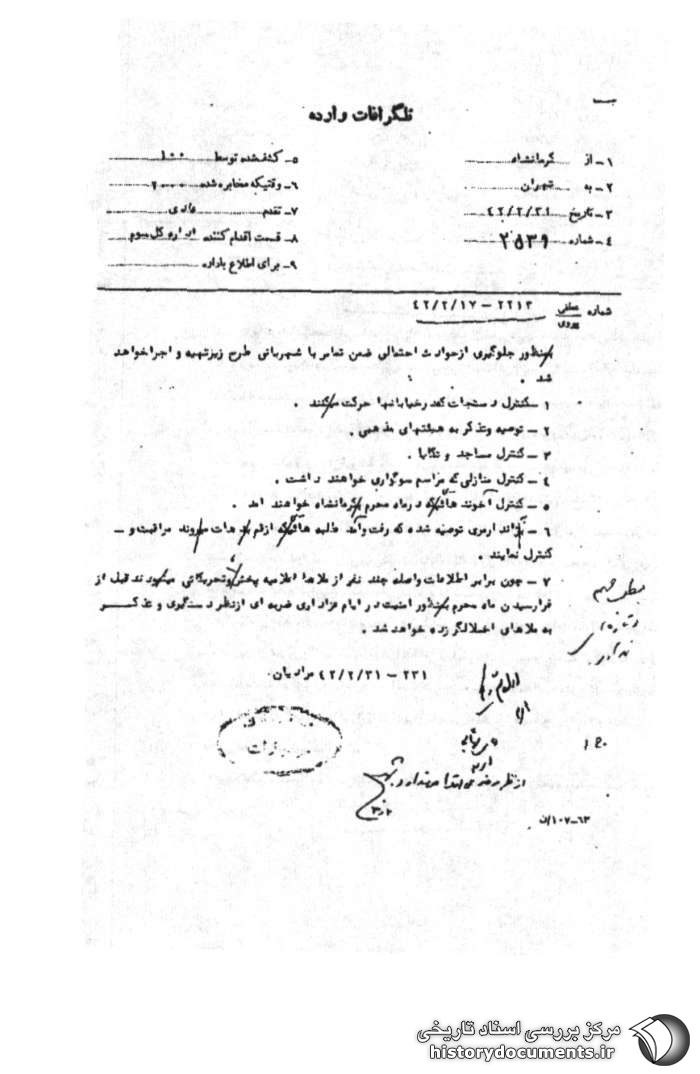 تلگرافات وارده
۱ـ از کرمانشاه
۲ـ به تهران
۳ـ تاریخ ۴۲/۲/۳۱
۴ـ شماره ۲۵۳۹
۵ـ کشف شده توسط ۱۰۰
۶ـ وقتیکه مخابره شده ۲۰۰۰
۷ـ تقدم عادی
۸ـ قسمت اقدام کننده اداره کل سوم
۹ـ برای اطلاع باداره
شماره عطفی پیروی ۲۲۱۳ – ۴۲/۲/۱۷
بمنظور جلوگیری از حوادث احتمالی ضمن تماس با شهربانی طرح زیر تهیه و اجرا خواهد
شد .
۱ – کنترل دستجات که در خیابانها حرکت میکنند .
۲ – توصیه و تذکر به هیئتهای مذهبی .
۳ – کنترل مساجد و تکایا .
۴ – کنترل منازلی که مراسم سوگواری خواهند داشت .
۵ – کنترل آخوند هائیکه در ماه محرم بکرمانشاه خواهند آمد .
۶ – به ژاندارمری توصیه شده که رفت و آمد طلبه هائیکه از قم بدهات میروند مراقبت و –
کنترل نمایند .
۷ – چون برابر اطلاعات واصله چند نفر از ملاها اعلامیه پخش و تحریکاتی مینمودند قبل از
فرا رسیدن ماه محرم بمنظور امنیت در ایام عزاداری ضربه ای از نظر دستگیری و تذکر
به ملاهای اخلالگر زده خواهد شد .
۲۳۱ – ۴۲/۲/۳۱ مرادیان
مطلب مهم
و تازه ای
ندارد
۱۰۷-۶۳/ن
مرکز بررسی اسناد تاریخی
historydocuments.ir